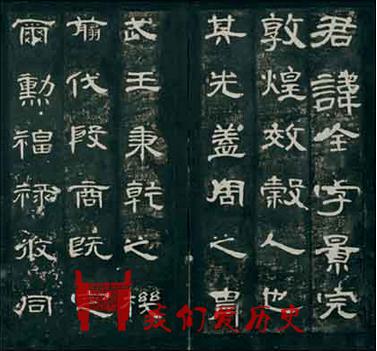 君諱全字景完
敦煌效穀人也
其先蓋周之胄
武王秉乾之機
翦伐殷商既定
爾勳福祿攸同
我们爱历史